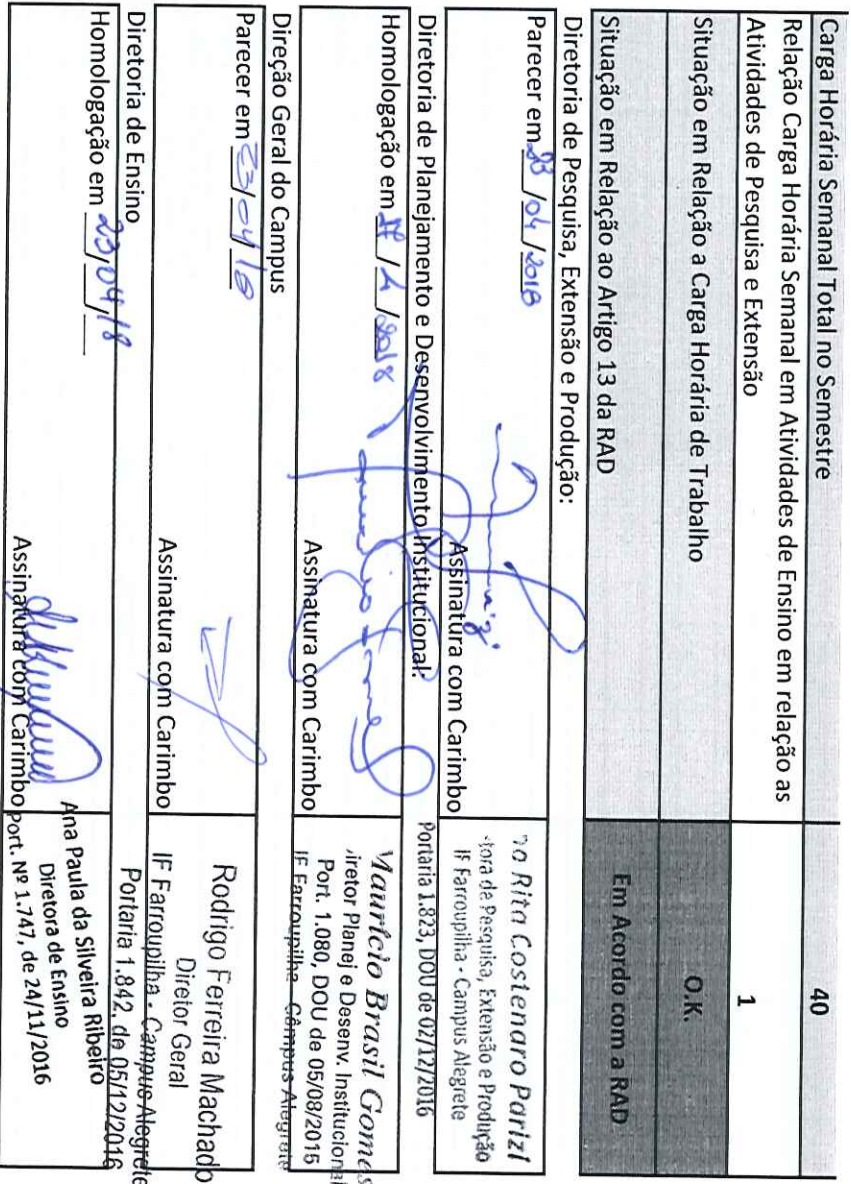 Carga Horária Semanal Total no Semestre 40
Relação Carga Horária Semanal em Atividades de Ensino em relação as
Atividades de Pesquisa e Extensão 1
Situação em Relação a Carga Horária de Trabalho O.K.
Situação em Relação ao Artigo 13 da RAD Em Acordo com a RAD
Diretoria de Pesquisa, Extensão e Produção:
Parecer em 23/04/2018
Assinatura com Carimbo
Rita Costenaro Parizi
de Pesquisa, Extensão e Produção
IF Farroupilha - Campus Alegrete
Portaria 1.823, DOU de 02/12/2016
Diretoria de Planejamento e Desenvolvimento Institucional:
Homologação em /4/2018
Assinatura com Carimbo
Maurício Brasil Gomes
iretor Planej e Desenv. Institucional
Port. 1.080, DOU de 05/08/2015
IF Farroupilha - Câmpus Alegrete
Direção Geral do Campus
Parecer em 23/04/18
Assinatura com Carimbo
Rodrigo Ferreira Machado
Diretor Geral
IF Farroupilha - Campus Alegrete
Portaria 1.842, de 05/12/2016
Diretoria de Ensino
Homologação em 23/04/18
Assinatura com Carimbo
Ana Paula da Silveira Ribeiro
Diretora de Ensino
Port. Nº 1.747, de 24/11/2016